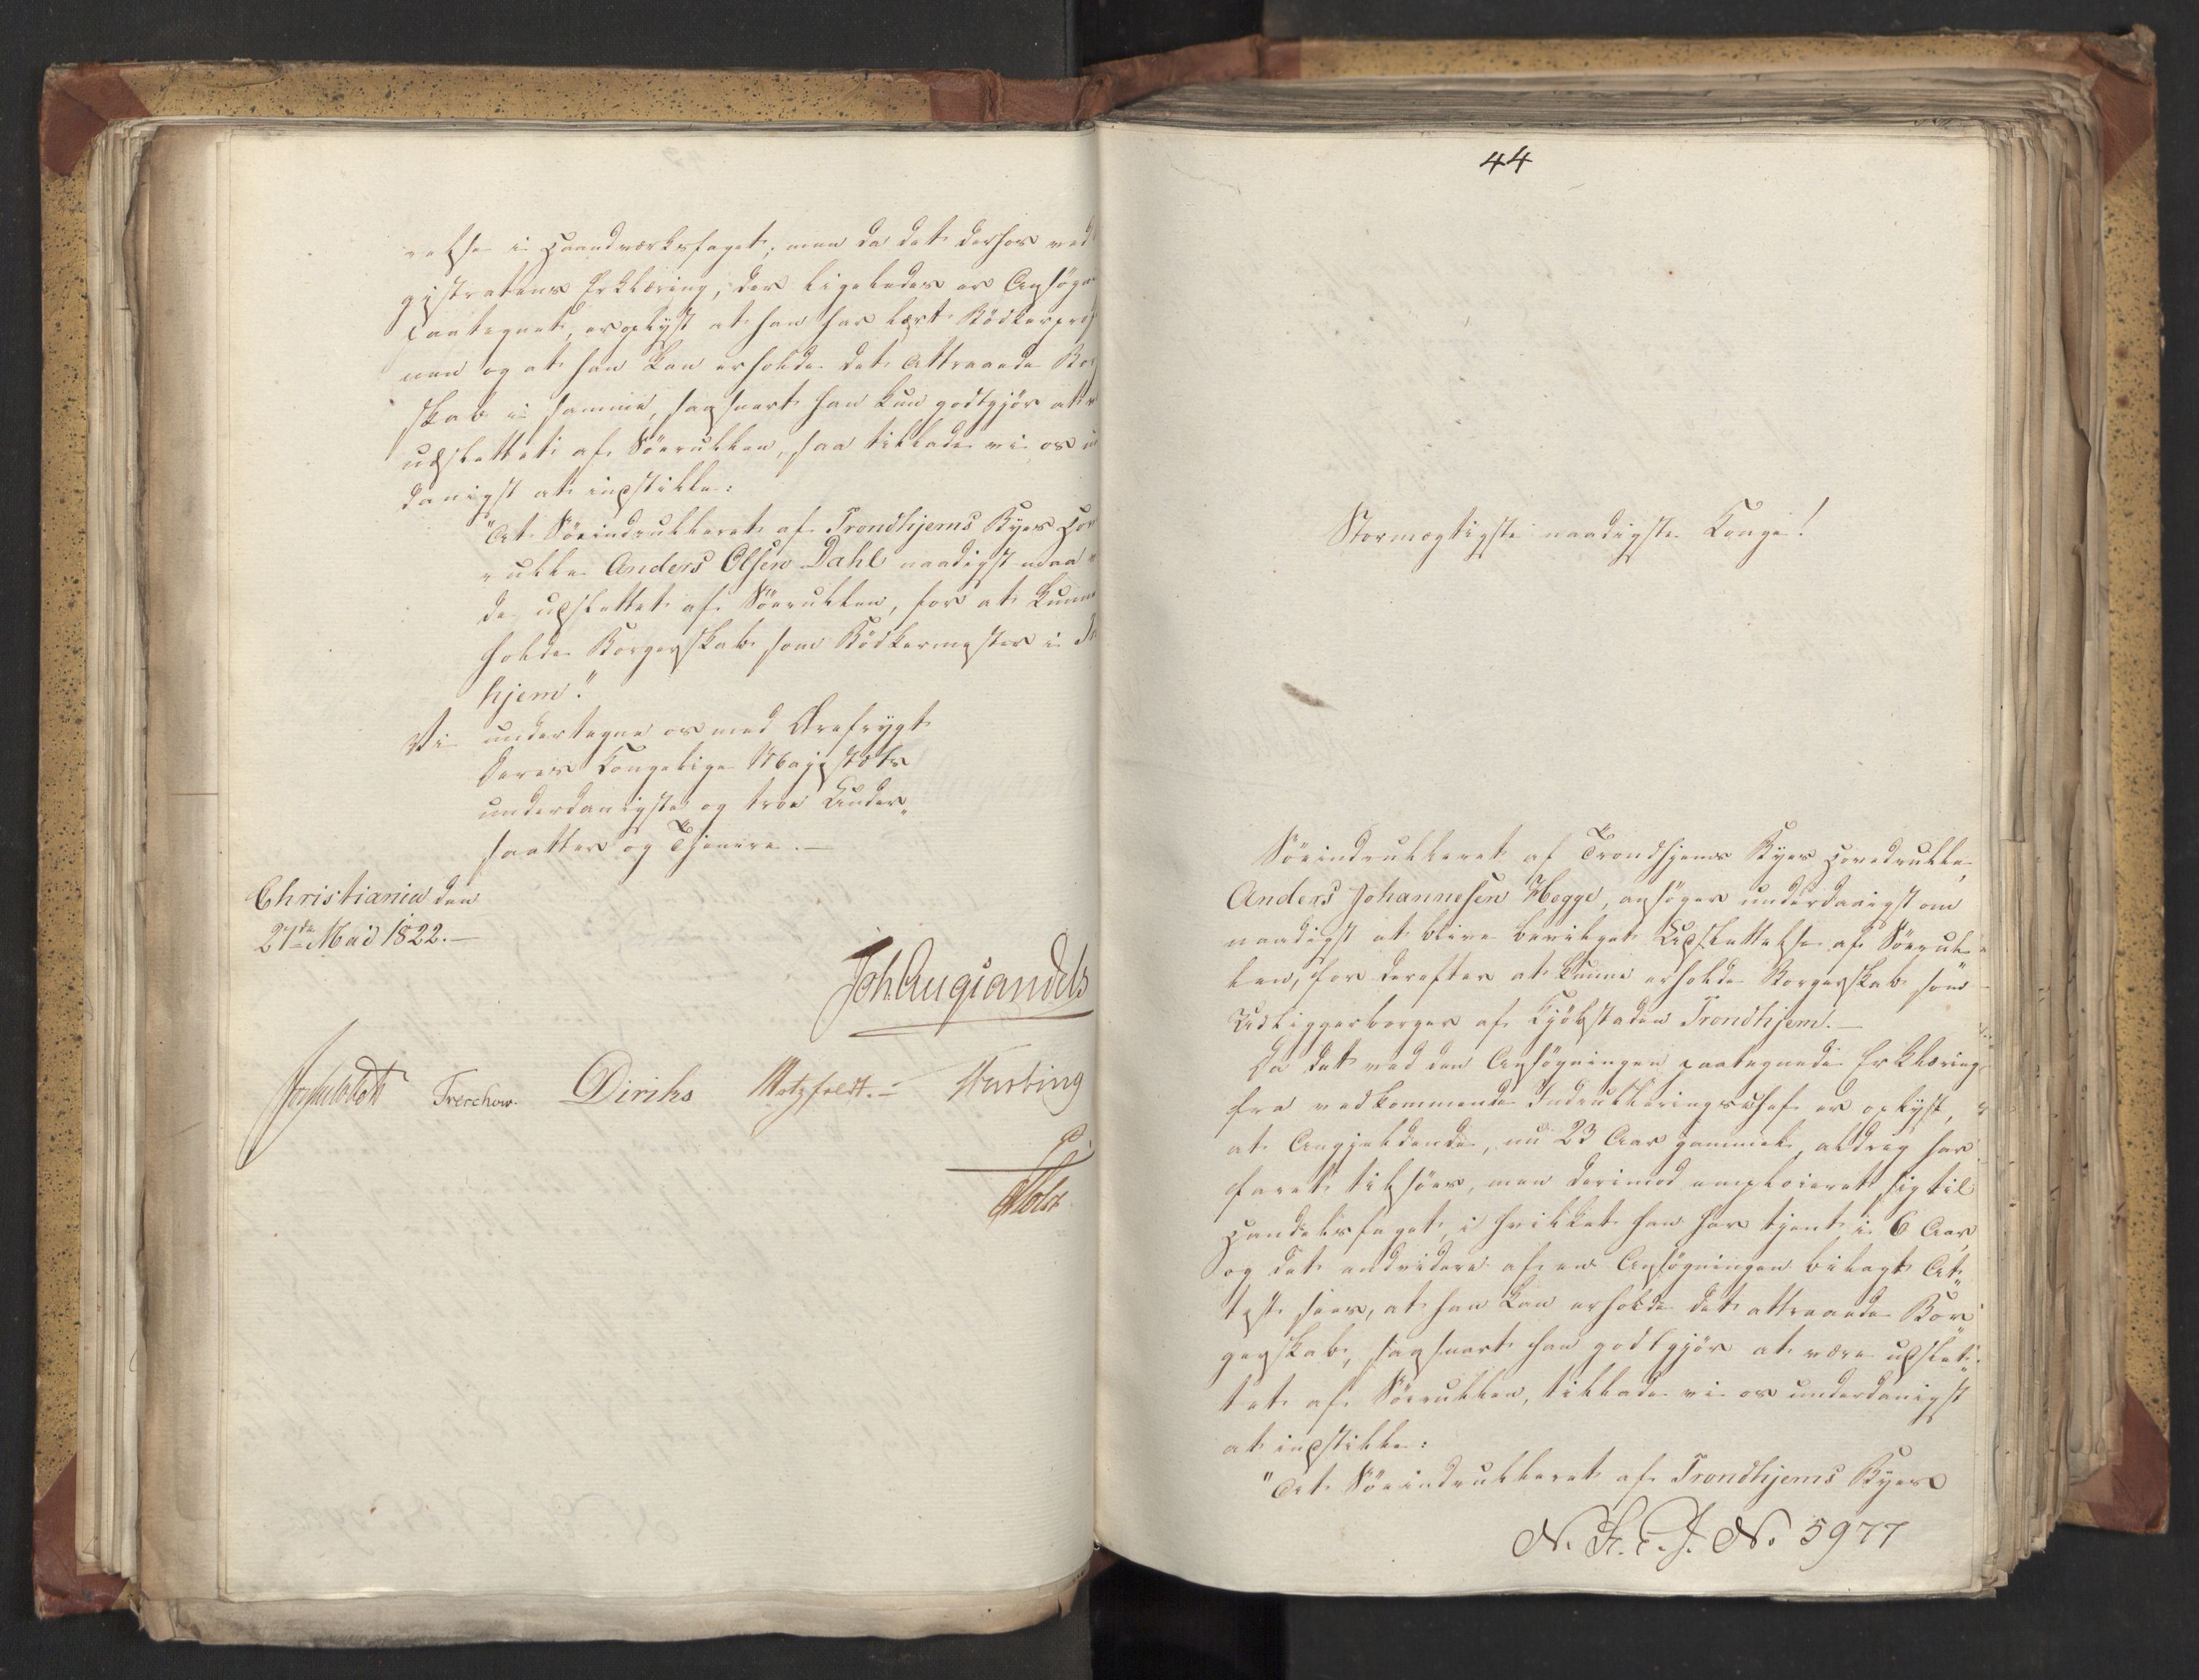 relse i Haandverksfaget; men da det derhos ved
gistratens Erklæring, der ligeledes er Ansøgn
paategnet, er oplyst at han har lært Bødkerprof
nen og at han kan erholde det attraaede Bor
skab i samme, saasnart han kun godtgjør at v
udslettet af Søerullen, saa tillade vi os u
danigst at indstille:
"At Søeindrulleret af Trondhjems Byes Ho
rulle Anders Olsen Dahl naadigst maa
de udslettet af Søerullen, for at kunne
holde Borgerskab som Bødkermester i Tr
hjem."
Vi undertegne os med Ærefrygt
Deres Kongelige Majestæts
underdanigste og troe Under„
saatter og Tjenere.—
Christiania den
27de Mai 1822.—
Joh. Aug. Sandels
Sommerfeldt Treschow. Diriks Motzfeldt.— Fasting
Holst
44
Stormægtigste naadigste Konge!
Søeindrulleret af Trondhjems Byes Hovedrulle,
Anders Johannesen Hogge, ansøger underdanigst om
naadigst at blive bevilget Udslettelse af Søerul„
len, for derefter at kunne erholde Borgerskab som
Udliggerborger af Kjøbstaden Trondhjem.—
Da det ved den Ansøgningen paategnede Erklæring
fra vedkommende Indrulleringschef er oplyst,
at Angjeldende, nu 23 Aar gammel, aldrig har
faret tilsøes, men derimod emploieret sig til
Handelsfaget, i hvilket han har tjent i 6 Aar,
og det endvidere af en Ansøgningen bilagt At„
test sees, at han kan erholde det attraaede Bor„
gerskab, saasnart han godtgjør at være udslet„
tet af Søerullen, tillade vi os underdanigst
at indstille:
"At Søeindrulleret af Trondhjems Byes
N. R. T. J. No. 5977